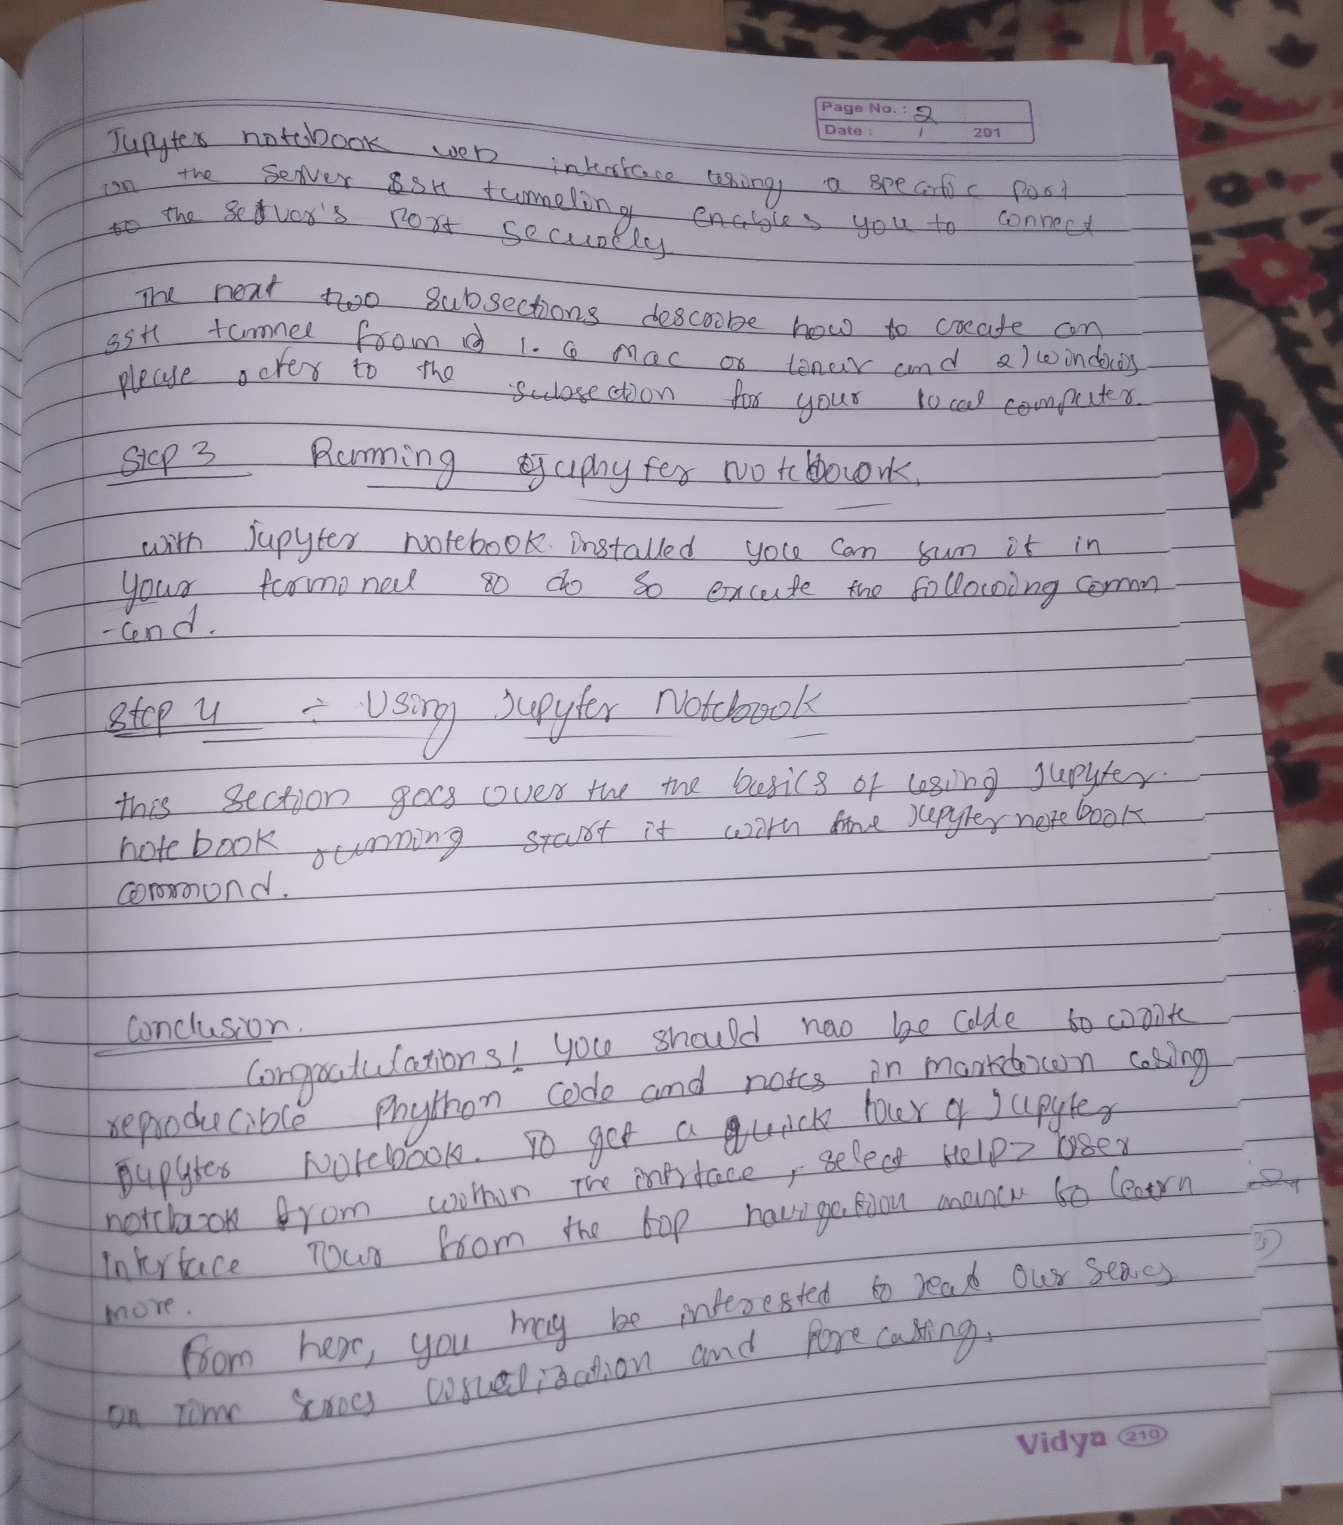 Page No. : 2
Date : / 201
Jupyter notebook web interface using a specific port
on the Server SSH tunneling enables you to connect
to the server's Port Securely
The next two subsections describe how to create an
SSH tunnel from 1. a Mac or Linux and 2) windows
please refer to the subsection for your local computer.
Step 3 Running Juphyter Notebook.
with Jupyter Notebook installed you can run it in
your do so execute the following comm
-and.
Step 4 ÷ Using Jupyter Notebook
this section goes over the the basics of using Jupyter
notebook running start it with the Jupyter notebook
command.
Conclusion.
Congratulations! you should be to write
reproducible Phython code and notes in markdown using
Jupyter Notebook. To get a quick tour of Jupyter
notebook from within The interface, select Help> User
Interface Tour from the top navigation to learn
more.
from here, you may be interested to read our series
on Time Series visualization and fore casting.
Vidya 210